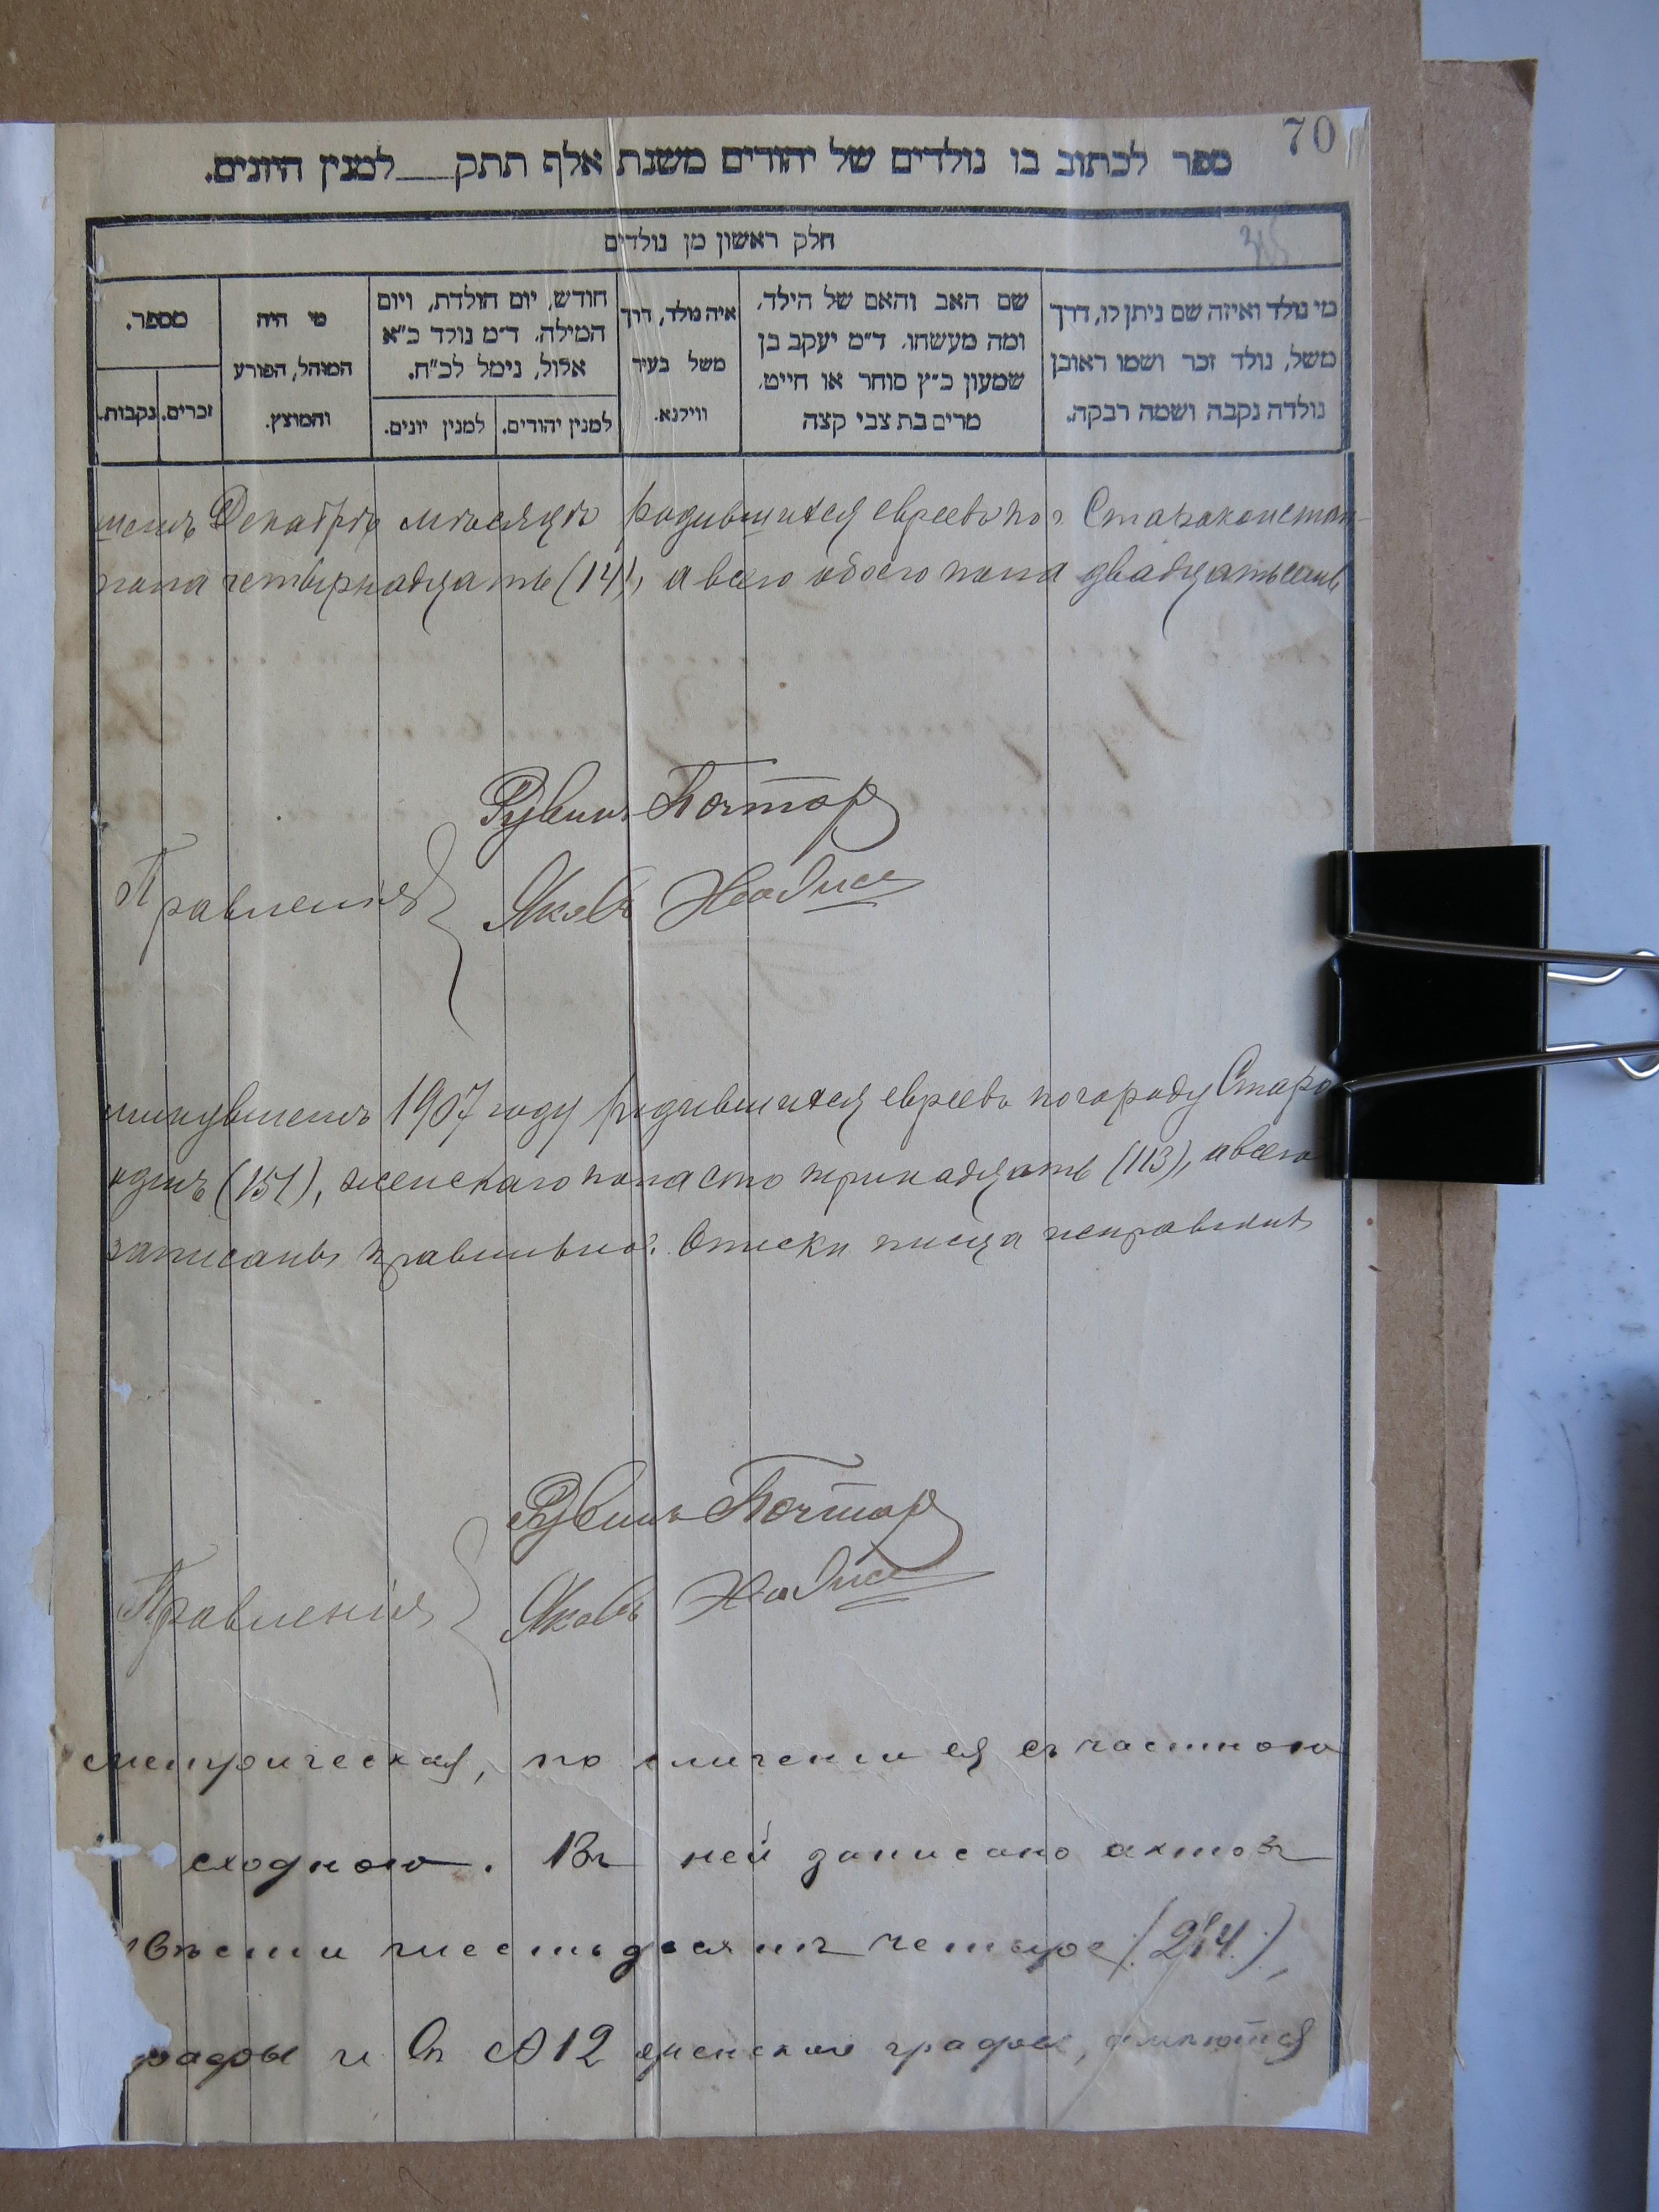 70
ספר לכתוב בו נולדים של יהודים משנת אלף תתק___למנין היונים.
305
חלק ראשון מן נולדים
מי נולד ואיזה שם ניתן לו, דרך
משל, נולד זכר ושמו ראובן
נולדה נקבה ושמה רבקה.
שם האב והאם של הילד,
ומה מעשהו. ד״מ יעקב בן
שמעון כ״ץ סוחר או חייט,
מרים בת צבי קצה
איה נולד, דרך
משל בעיר
ווילנא.
חודש, יום הולדת, ויום
המילה. ד״מ נולד כ״א
אלול, נימל לכ״ח.
למנין יהודים.
למנין יונים.
מי היה
המוהל, הפורע
והמוצץ.
מספר.
זכרים.
נקבות.
шемъ Декабрѣ мѣсяцѣ родившихся евреевъ по г. Староконстан-
пола четырнадцать (14), а всего обоего пола двадцать семь
Рувинъ Почтар
Правленія
Яковъ
минувшемъ 1907 году родившихся евреевъ по городу Старо
одинъ (151), женскаго пола сто тринадцать (113), а всего
записаны правильно. Описки писца исправлены
Рувинъ Почтар
Правленія
Яковъ
метрическая, по сличеніи ея съ частною
сходною. Въ ней записано актовъ
двѣсти шестьдесятъ четыре (264),
графы и въ № 12 женской графы, имѣются